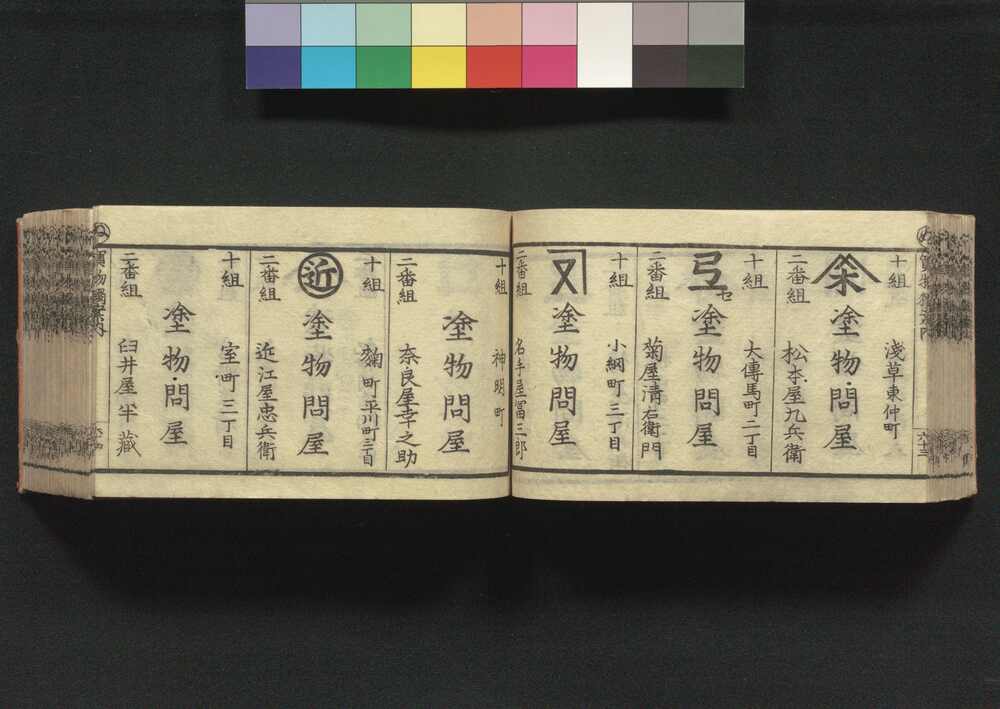 十組
淺草東仲町
塗物問屋
二番組
松本屋九兵衛
十組
大傳馬町二丁目
セ
塗物問屋
二番組
菊屋清右衛門
十組
小網町三丁目
又
塗物問屋
二番組
名手屋冨三郎
十組
神明町
塗物問屋
二番組
奈良屋幸之助
十組
麹町平川町三丁目
近
塗物問屋
二番組
近江屋忠兵衛
十組
室町三丁目
塗物問屋
二番組
臼井屋半藏